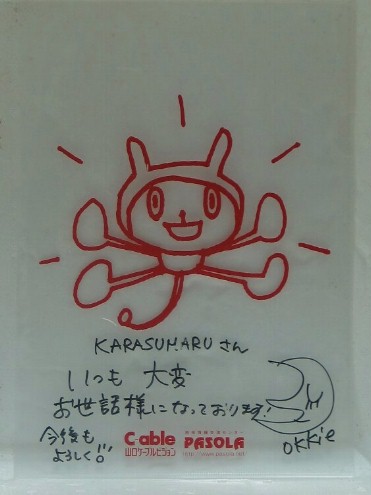 KARASUMARUさん
いつも 大変
お世話様になっております!
今後も
よろしく!!
C-able
山口ケーブルビジョン
PASOLA
okkie